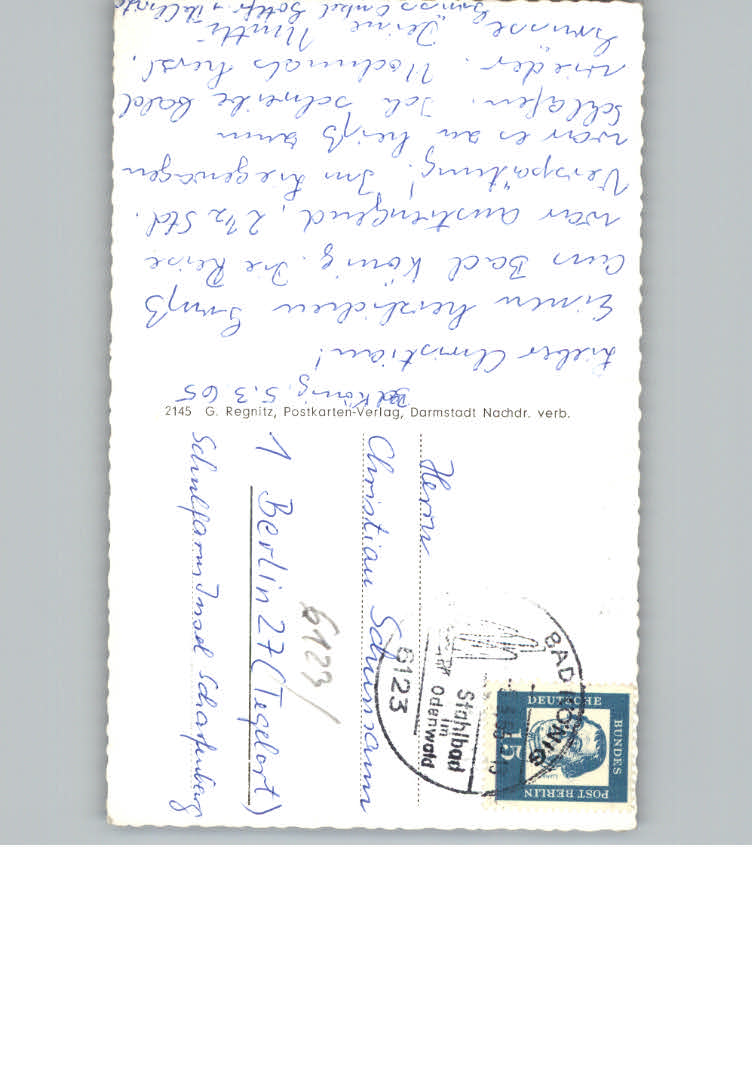 Bad König, 5.3.65
Lieber Christian!
Einen herzlichen Gruß
aus Bad König. Die Reise
war anstrengend, 2 1/2 Std.
Verspätung! Im Liegewagen
war es zu heiß zum
Schlafen. Ich schreibe bald
wieder. Nochmals herzl.
Grüsse Deine Mutti
Gruss Onkel
2145 G. Regnitz, Postkarten-Verlag, Darmstadt Nachdr. verb.
Herrn
Christian Schumann
1 Berlin 27 (Tegelort)
Schulfarm Insel Scharfenberg
6123
BAD KÖNIG
Stahlbad
im
Odenwald
6123
DEUTSCHE
BUNDES
POST BERLIN
15